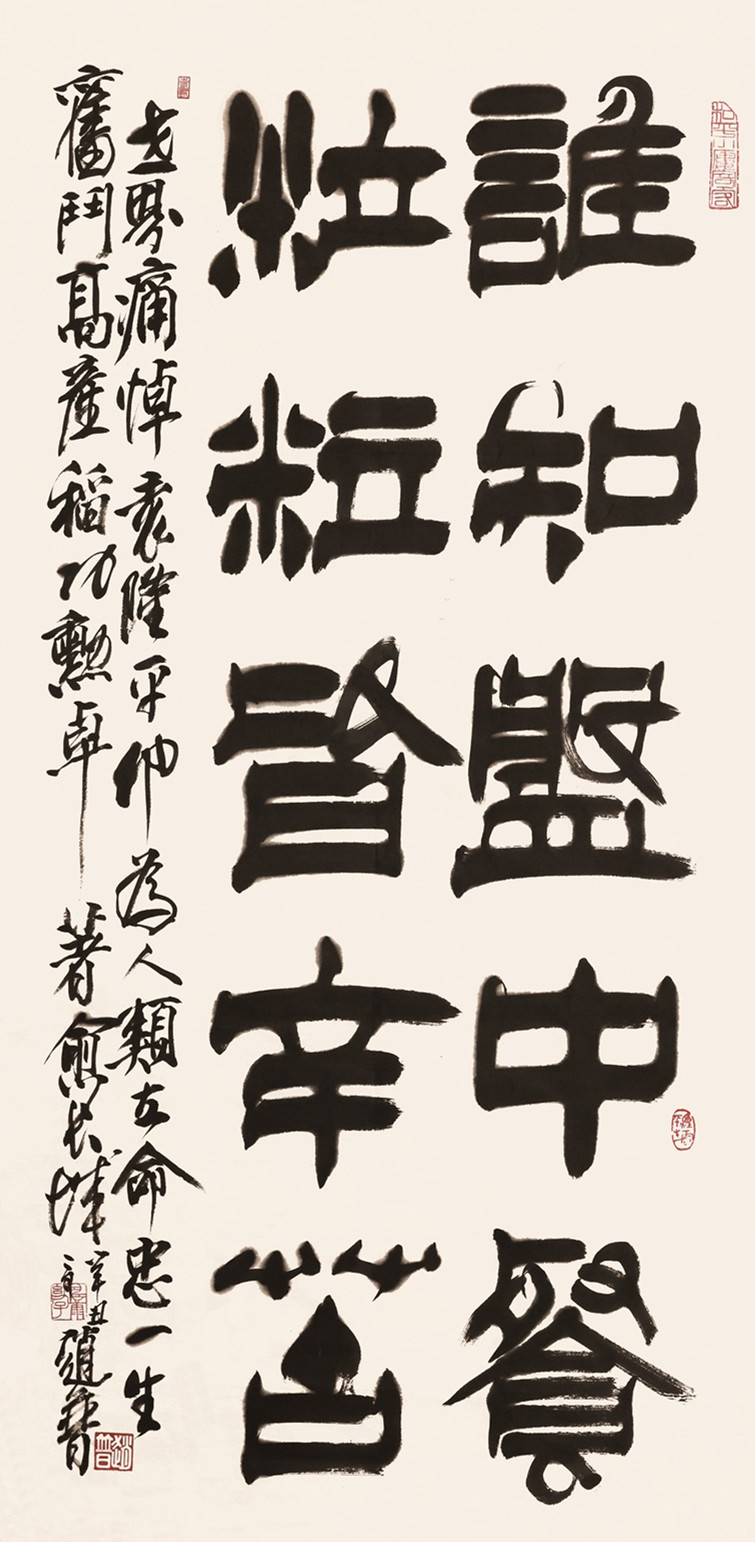 誰知盤中餐
粒粒皆辛苦
世界痛悼袁隆平仰為人類立命忠一生
奮鬥高產稻功勳卓著愈長城
辛丑
趙普
趙普